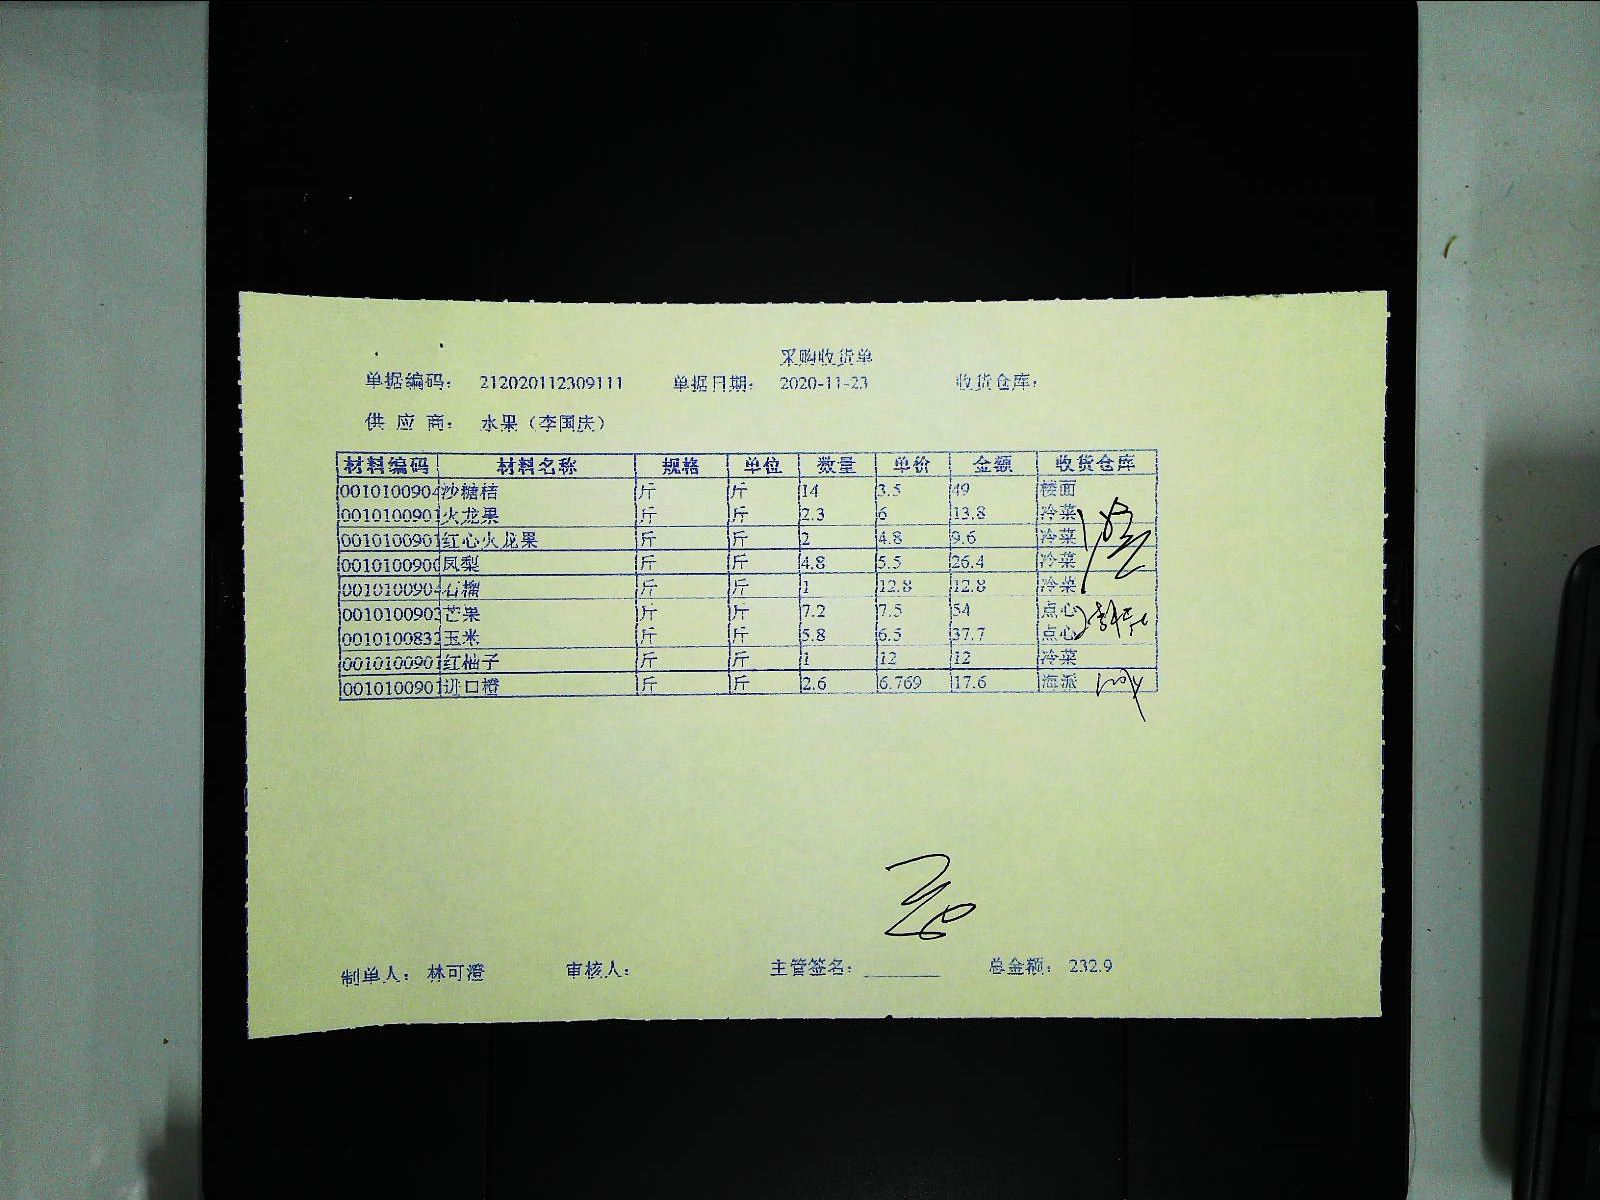 采购收货单
单据编码： 212020112309111 单据日期： 2020-11-23 收货仓库：
供 应 商： 水果（李国庆）
材料编码 材料名称 规格 单位 数量 单价 金额 收货仓库
0010100904 沙糖桔 斤 斤 14 3.5 49 楼面
0010100901 火龙果 斤 斤 2.3 6 13.8 冷菜
0010100901 红心火龙果 斤 斤 2 4.8 9.6 冷菜
0010100900 凤梨 斤 斤 4.8 5.5 26.4 冷菜
0010100904 石榴 斤 斤 1 12.8 12.8 冷菜
0010100903 芒果 斤 斤 7.2 7.5 54 点心
0010100832 玉米 斤 斤 5.8 6.5 37.7 点心
0010100901 红柚子 斤 斤 1 12 12 冷菜
0010100901 进口橙 斤 斤 2.6 6.769 17.6 海派
制单人： 林可澄 审核人： 主管签名： 总金额： 232.9